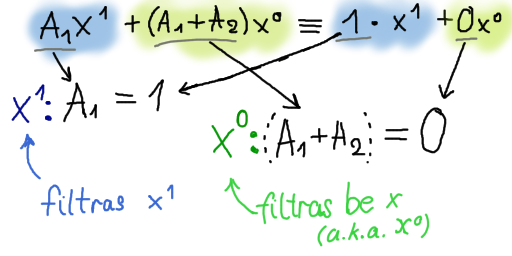 A₁x¹ + (A₁+A₂)x⁰ ≡ 1 · x¹ + 0x⁰
x¹: A₁ = 1
x⁰: (A₁+A₂) = 0
filtras x¹
filtras be x
(a.k.a. x⁰)